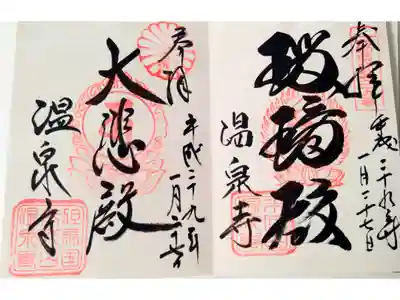 奉拝
平成二十九年
一月二十七日
瑠璃殿
温泉寺
奉拝
平成二十九年
一月
大悲殿
温泉寺
但馬国
温泉寺